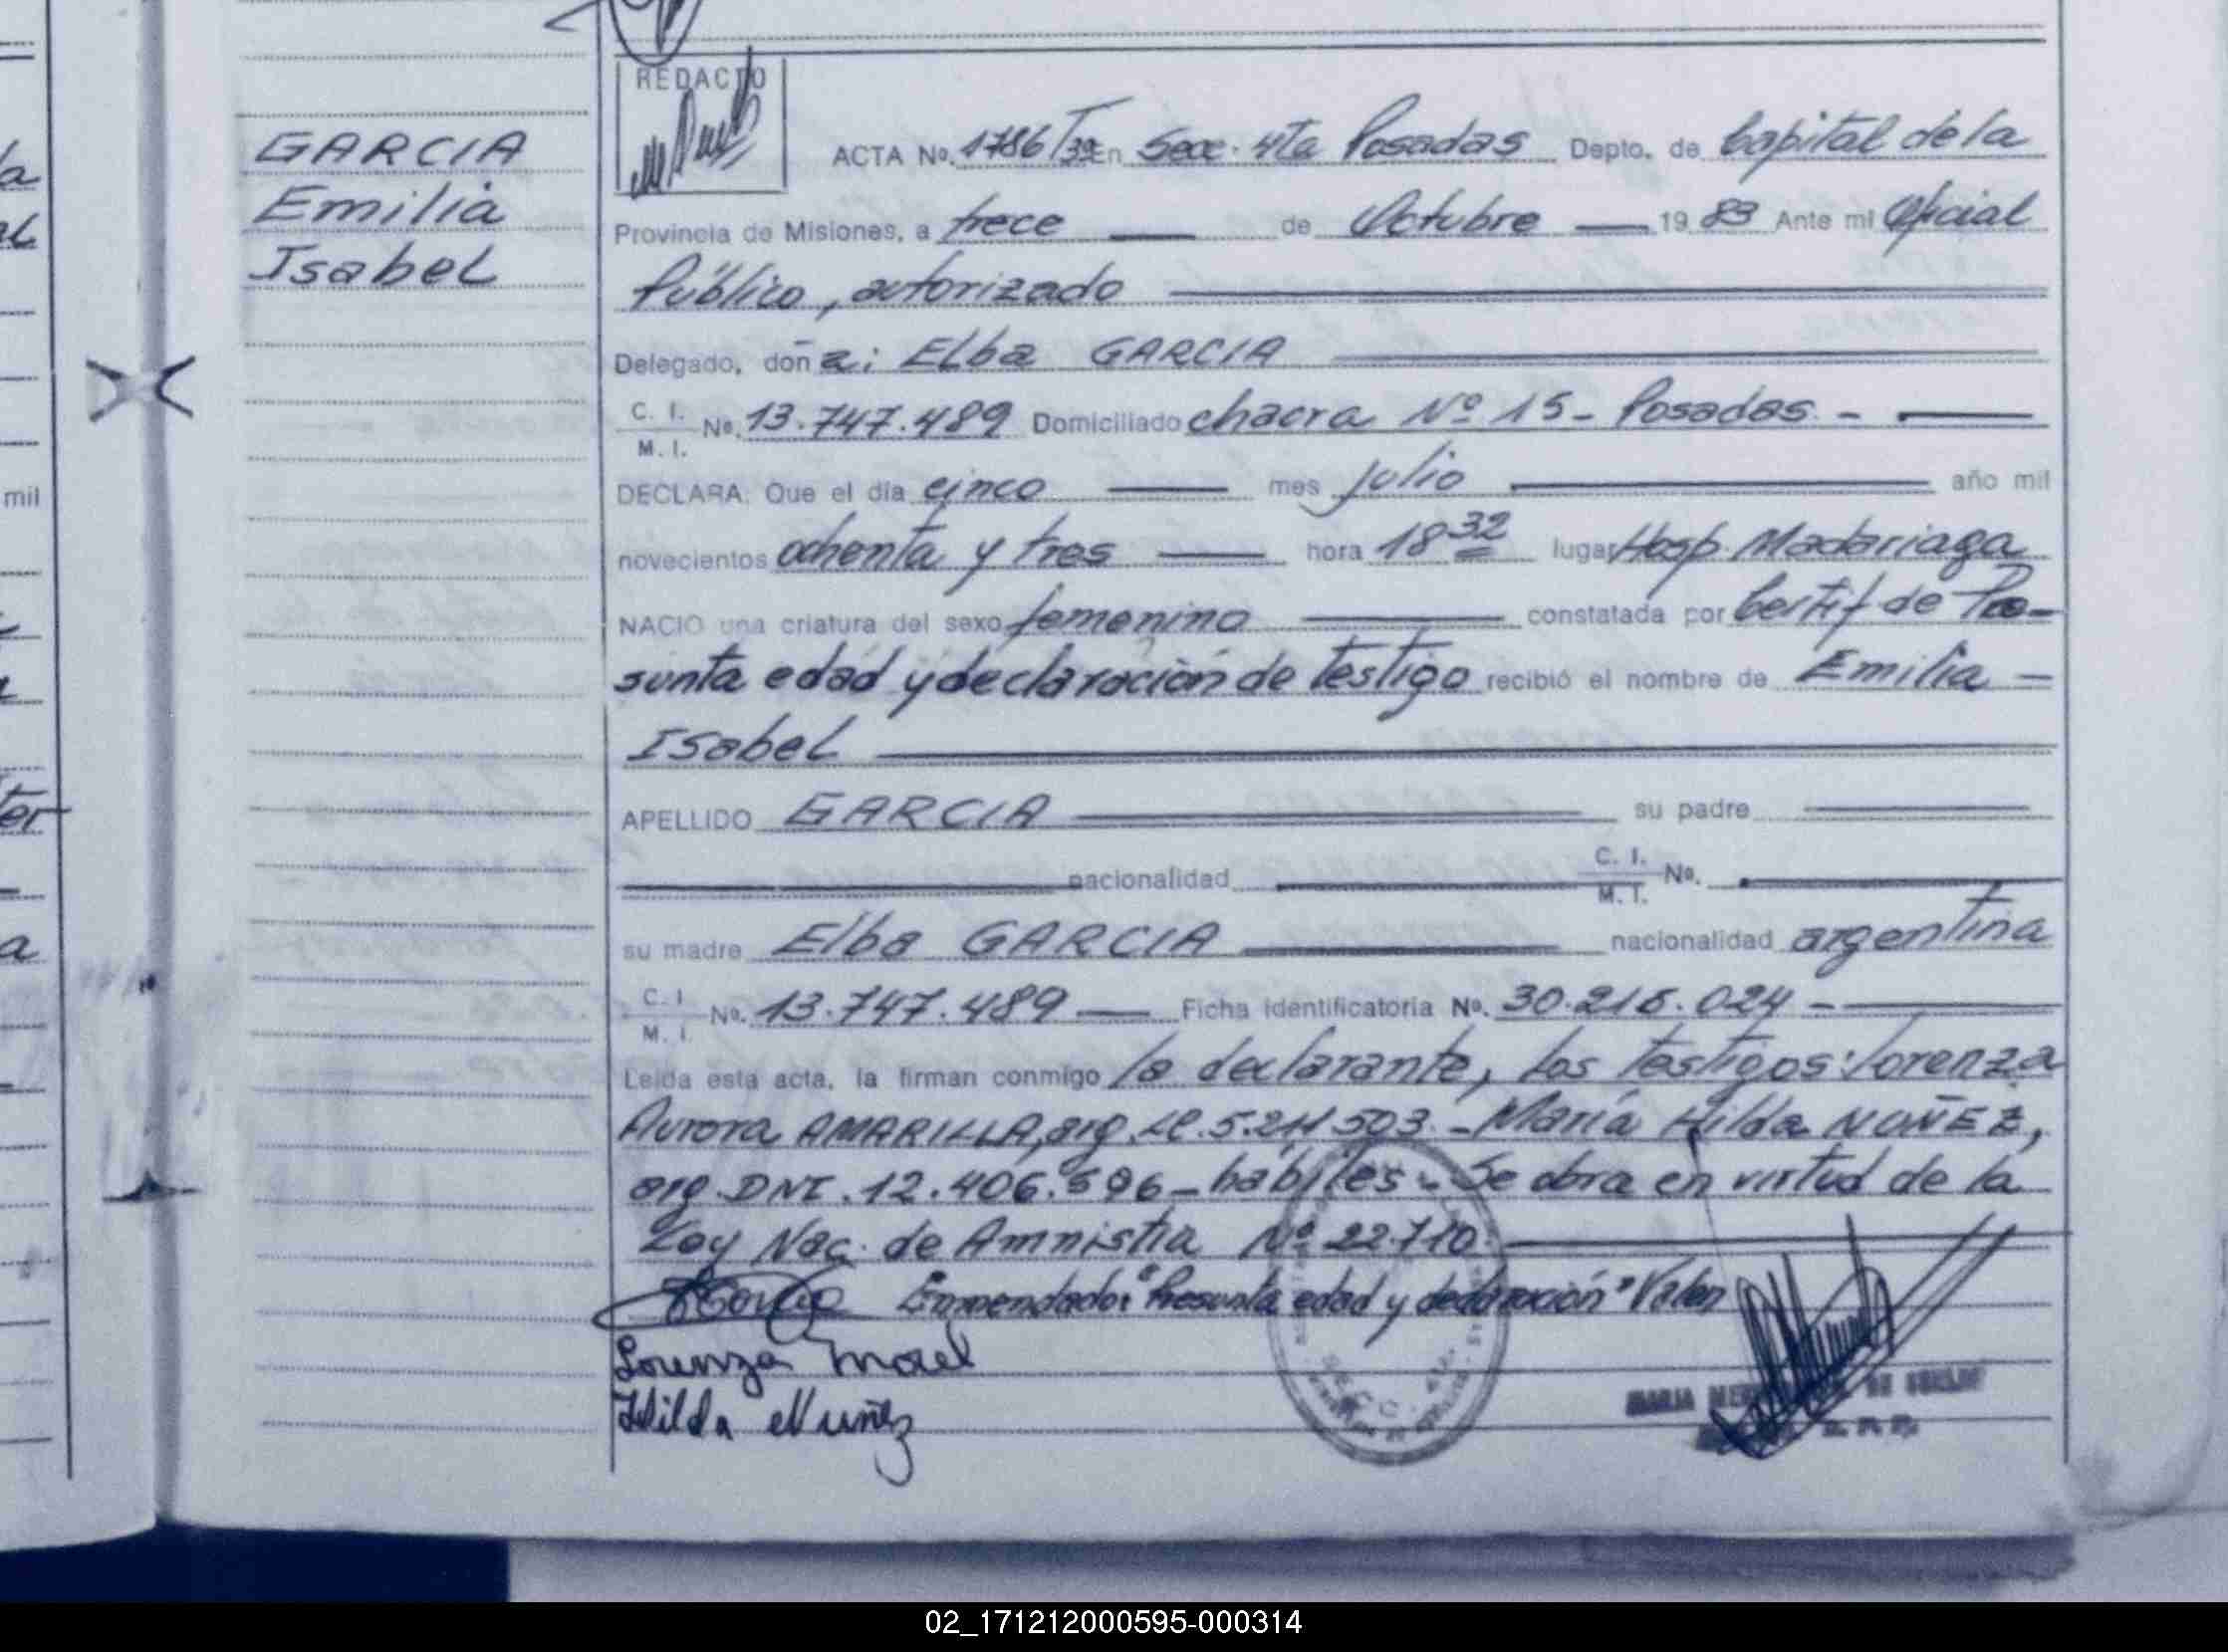 GARCIA
Emilia
Isabel
REDACTO
ACTA No. 1786/T39 En Secc. 4ta Posadas Depto. de Capital de la
Provincia de Misiones, a trece de Octubre 19 83 Ante mi Oficial
Público, autorizado
Delegado, don a: Elba GARCIA
C. I. M. I. No. 13.747.489 Domiciliado chacra Nº 15 - Posadas. -
DECLARA: Que el día cinco mes julio año mil
novecientos ochenta y tres hora 18 32 lugar Hosp. Madariaga
NACIO una criatura del sexo femenino constatada por Certif. de Pre-
sunta edad y declaración de testigo recibió el nombre de Emilia
Isabel
APELLIDO GARCIA su padre
nacionalidad C. I. M. I. No.
su madre Elba GARCIA nacionalidad argentina
C. I. M. I. No. 13.747.489 Ficha identificatoria No. 30.216.024 -
Leída esta acta, la firman conmigo la declarante, los testigos: Lorenza
Aurora AMARILLA, arg. LC. 5.211.503. - María Hilda NUÑEZ,
arg. DNI. 12.406.596 - hábiles - Se obra en virtud de la
Ley Nac. de Amnistia Nº 22.710.
Enmendado: "Presunta edad y declaración" Valen
Lorenza Morel
Hilda Nuñez
MARIA
mil
02_171212000595-000314